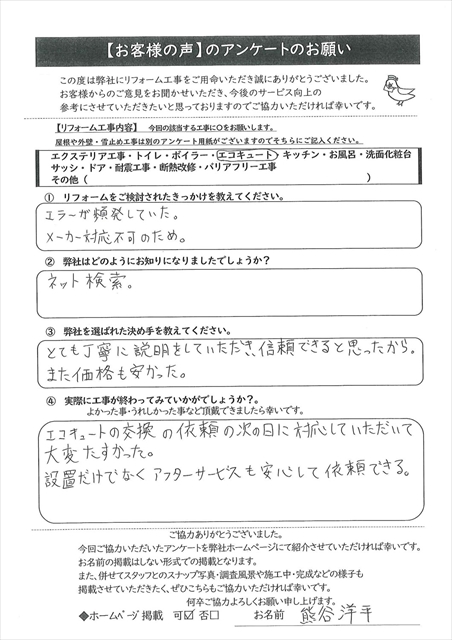 【お客様の声】のアンケートのお願い
この度は弊社にリフォーム工事をご用命いただき誠にありがとうございました。
お客様からのご意見をお聞かせいただき、今後のサービス向上の
参考にさせていただきたいと思っておりますのでご協力いただければ幸いです。
【リフォーム工事内容】 今回の該当する工事に○をお願いします。
屋根や外壁・雪止め工事は別のアンケート用紙がございますのでそちらにご記入ください。
エクステリア工事・トイレ・ボイラー・エコキュート・キッチン・お風呂・洗面化粧台
サッシ・ドア・耐震工事・断熱改修・バリアフリー工事
その他（ ）
① リフォームをご検討されたきっかけを教えてください。
エラーが頻発していた。
メーカー対応不可のため。
② 弊社はどのようにお知りになりましたでしょうか？
ネット検索。
③ 弊社を選ばれた決め手を教えてください。
とても丁寧に説明をしていただき、信頼できると思ったから。
また価格も安かった。
④ 実際に工事が終わってみていかがでしょうか？
よかった事・うれしかった事など頂戴できましたら幸いです。
エコキュートの交換の依頼の次の日に対応していただいて
大変たすかった。
設置だけでなくアフターサービスも安心して依頼できる。
ご協力ありがとうございました。
今回ご協力いただいたアンケートを弊社ホームページにて紹介させていただければ幸いです。
お名前の掲載はしない形式での掲載となります。
また、併せてスタッフとのスナップ写真・調査風景や施工中・完成などの様子も
掲載させていただきたく、ぜひこちらもご協力いただければ幸いです。
何卒ご協力よろしくお願い申し上げます。
◆ホームページ掲載 可☑ 否□ お名前 熊谷洋平